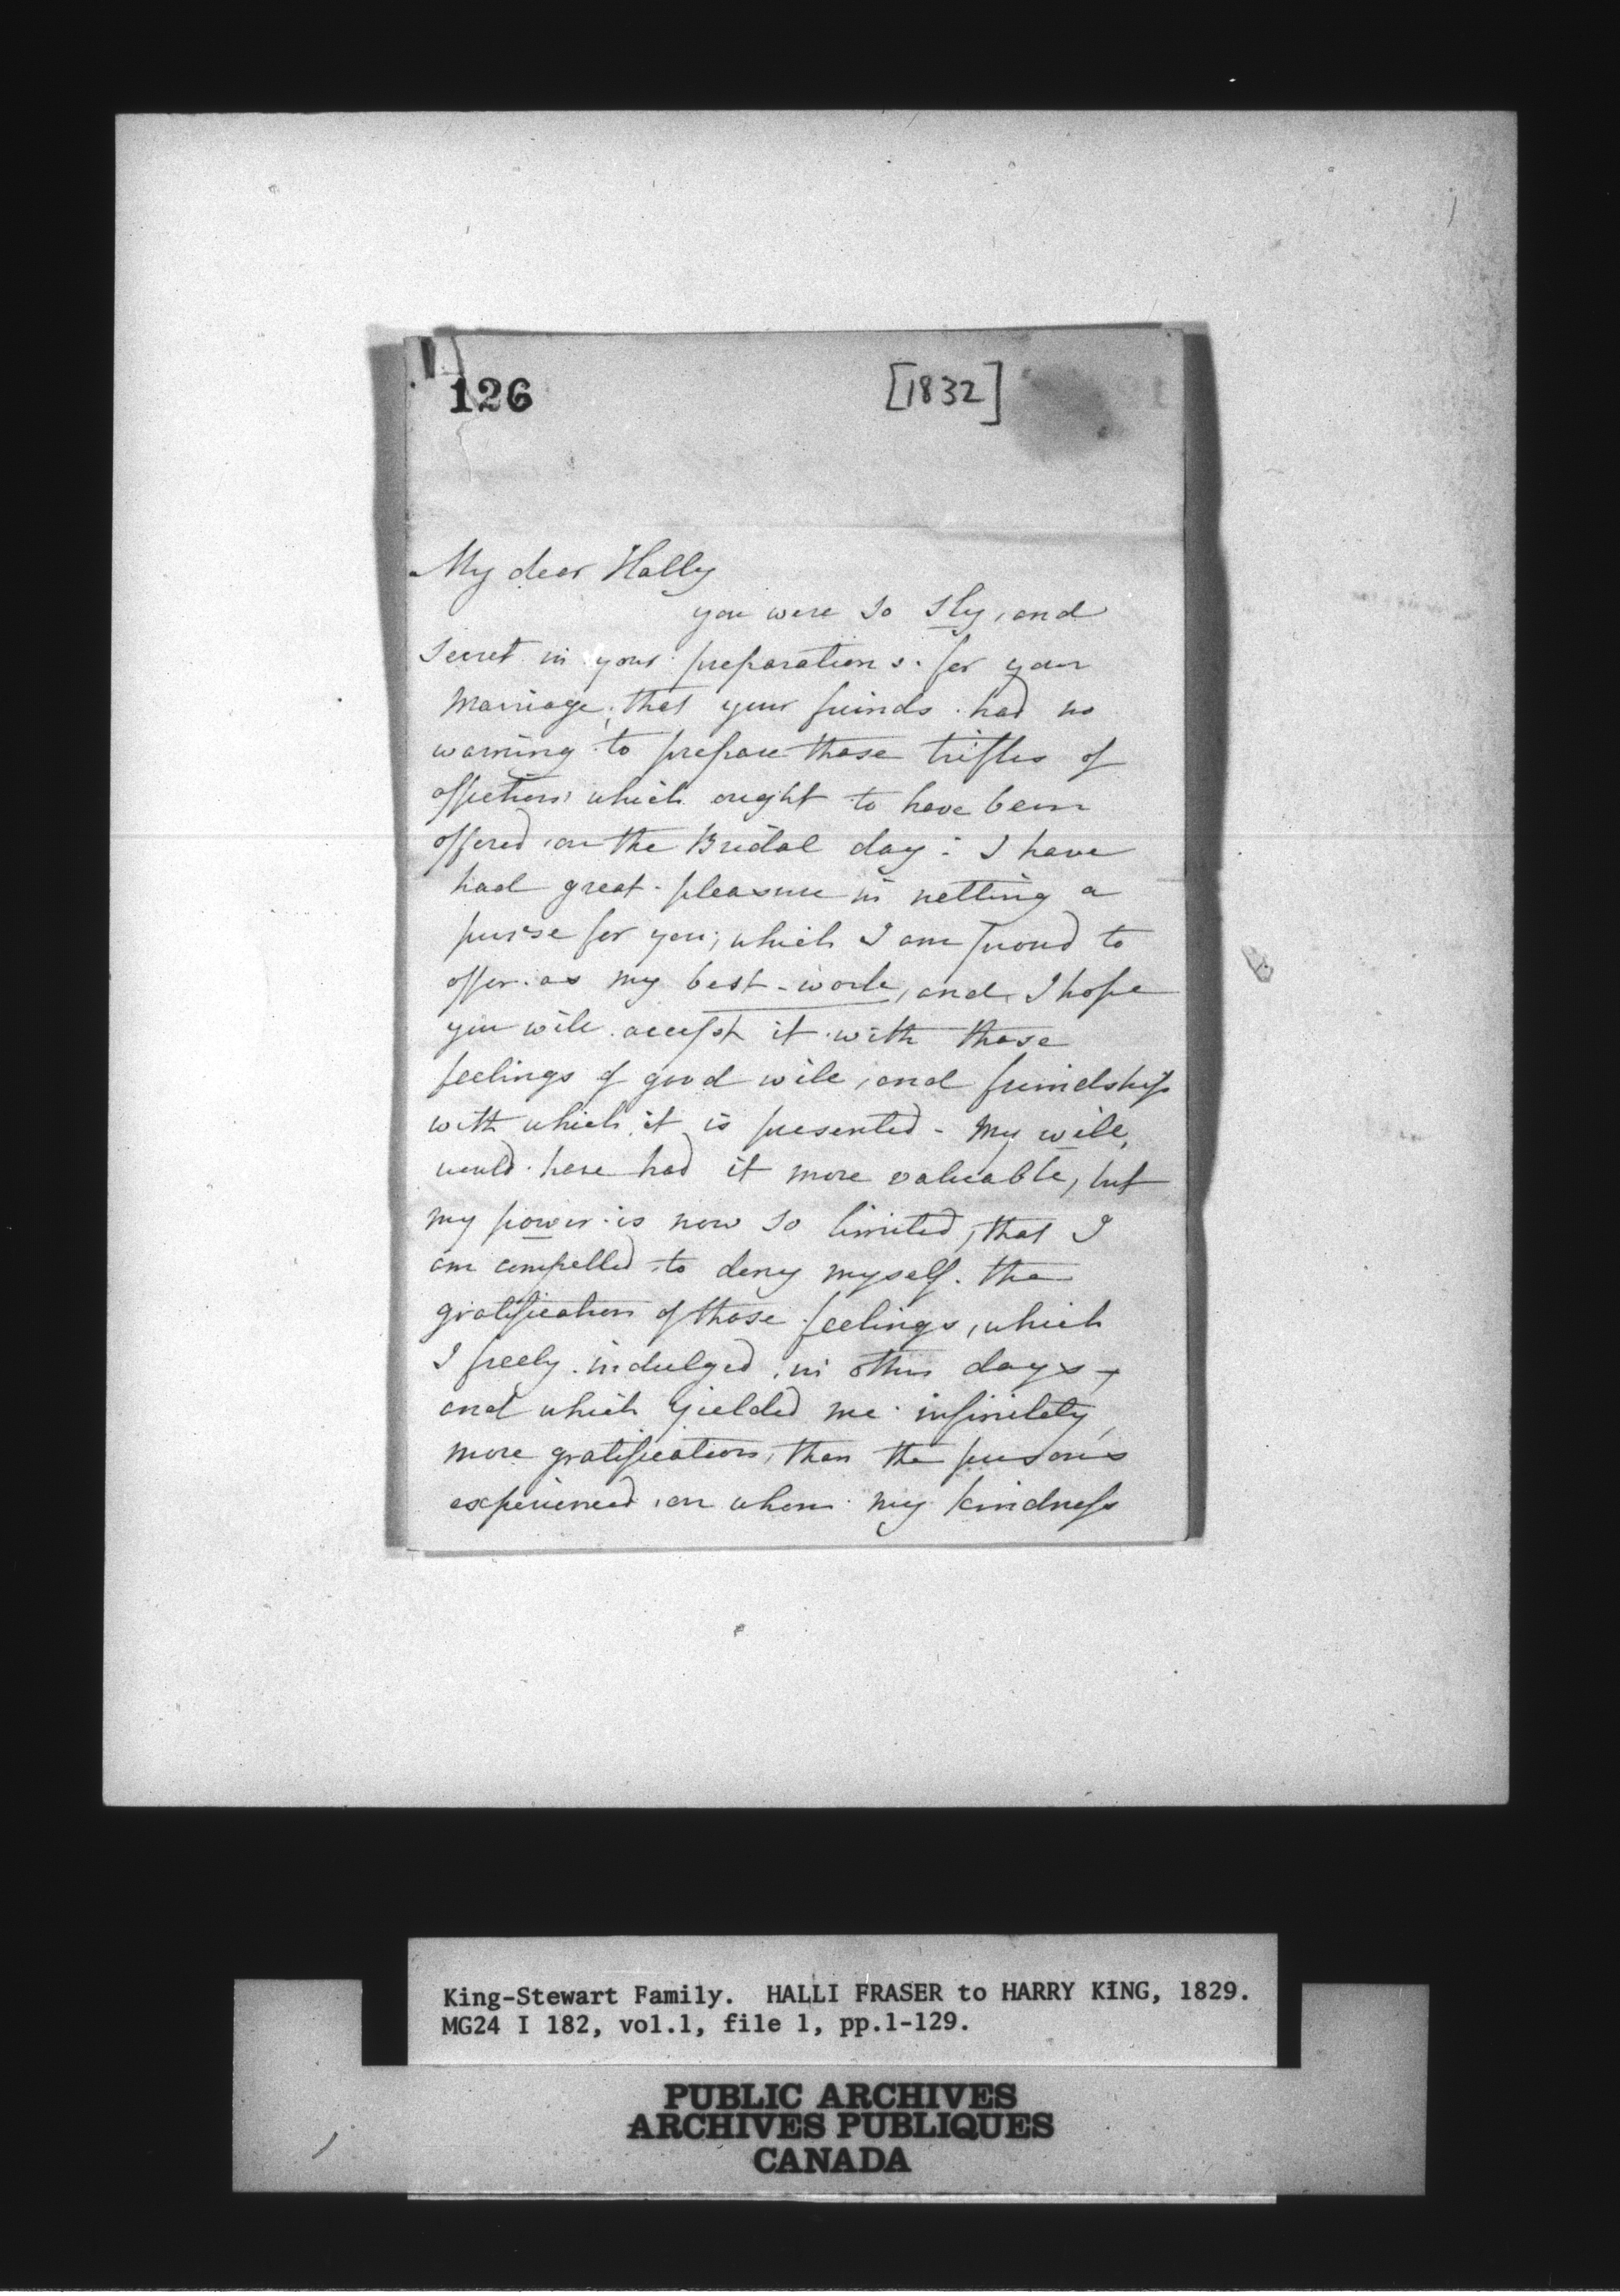 126
[1832]
My dear Hally
you were so sly, and
secret in your preparations for your
marriage, that your friends had no
warning to prepare those trifles of
affection, which ought to have been
offered on the Bridal day - I have
had great pleasure in netting a
purse for you, which I am proud to
offer as my best-work, and I hope
you will accept it with those
feelings of good will, and friendship
with which it is presented - My will,
would have had it more valuable, but
my power is now so limited, that I
am compelled to deny myself the
gratification of those feelings, which
I freely indulged in other days,
and which yielded me infinitely
more gratification, than the persons
experienced, on whom my kindness
King-Stewart Family. HALLI FRASER to HARRY KING, 1829.
MG24 I 182, vol.1, file 1, pp.1-129.
PUBLIC ARCHIVES
ARCHIVES PUBLIQUES
CANADA